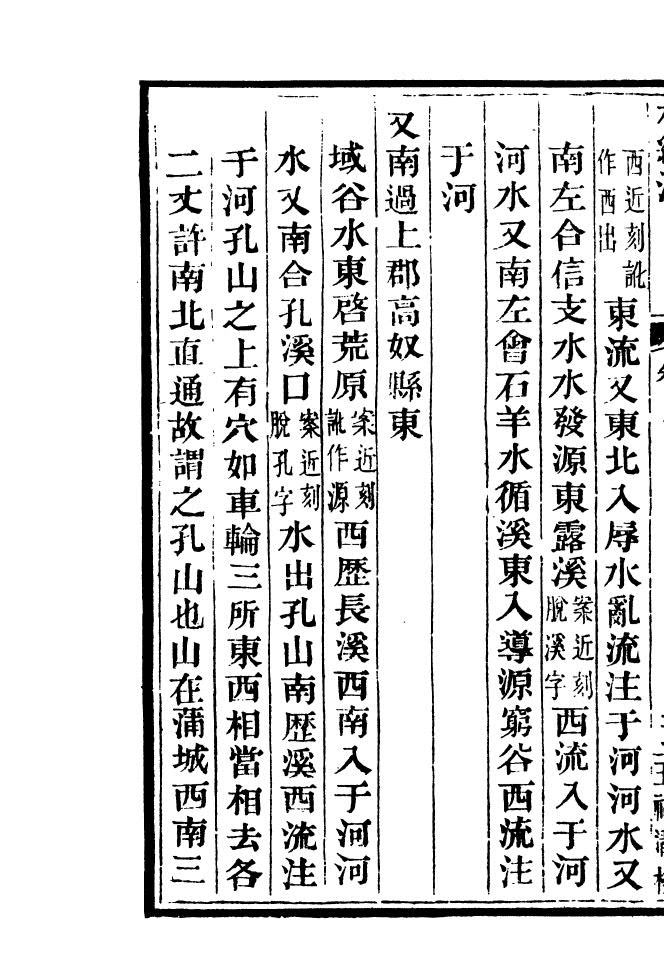 西近刻訛作西出東流又東北入辱水亂流注于河河水又
南左合信支水水發源東露溪案近刻脫溪字西流入于河
河水又南左會石羊水循溪東入導源窮谷西流注
于河
又南過上郡高奴縣東
域谷水東啓荒原案近刻訛作源西歴長溪西南入于河河
水又南合孔溪口案近刻脫孔字水出孔山南歴溪西流注
于河孔山之上有穴如車輪三所東西相當相去各
二丈許南北直通故謂之孔山也山在蒲城西南三